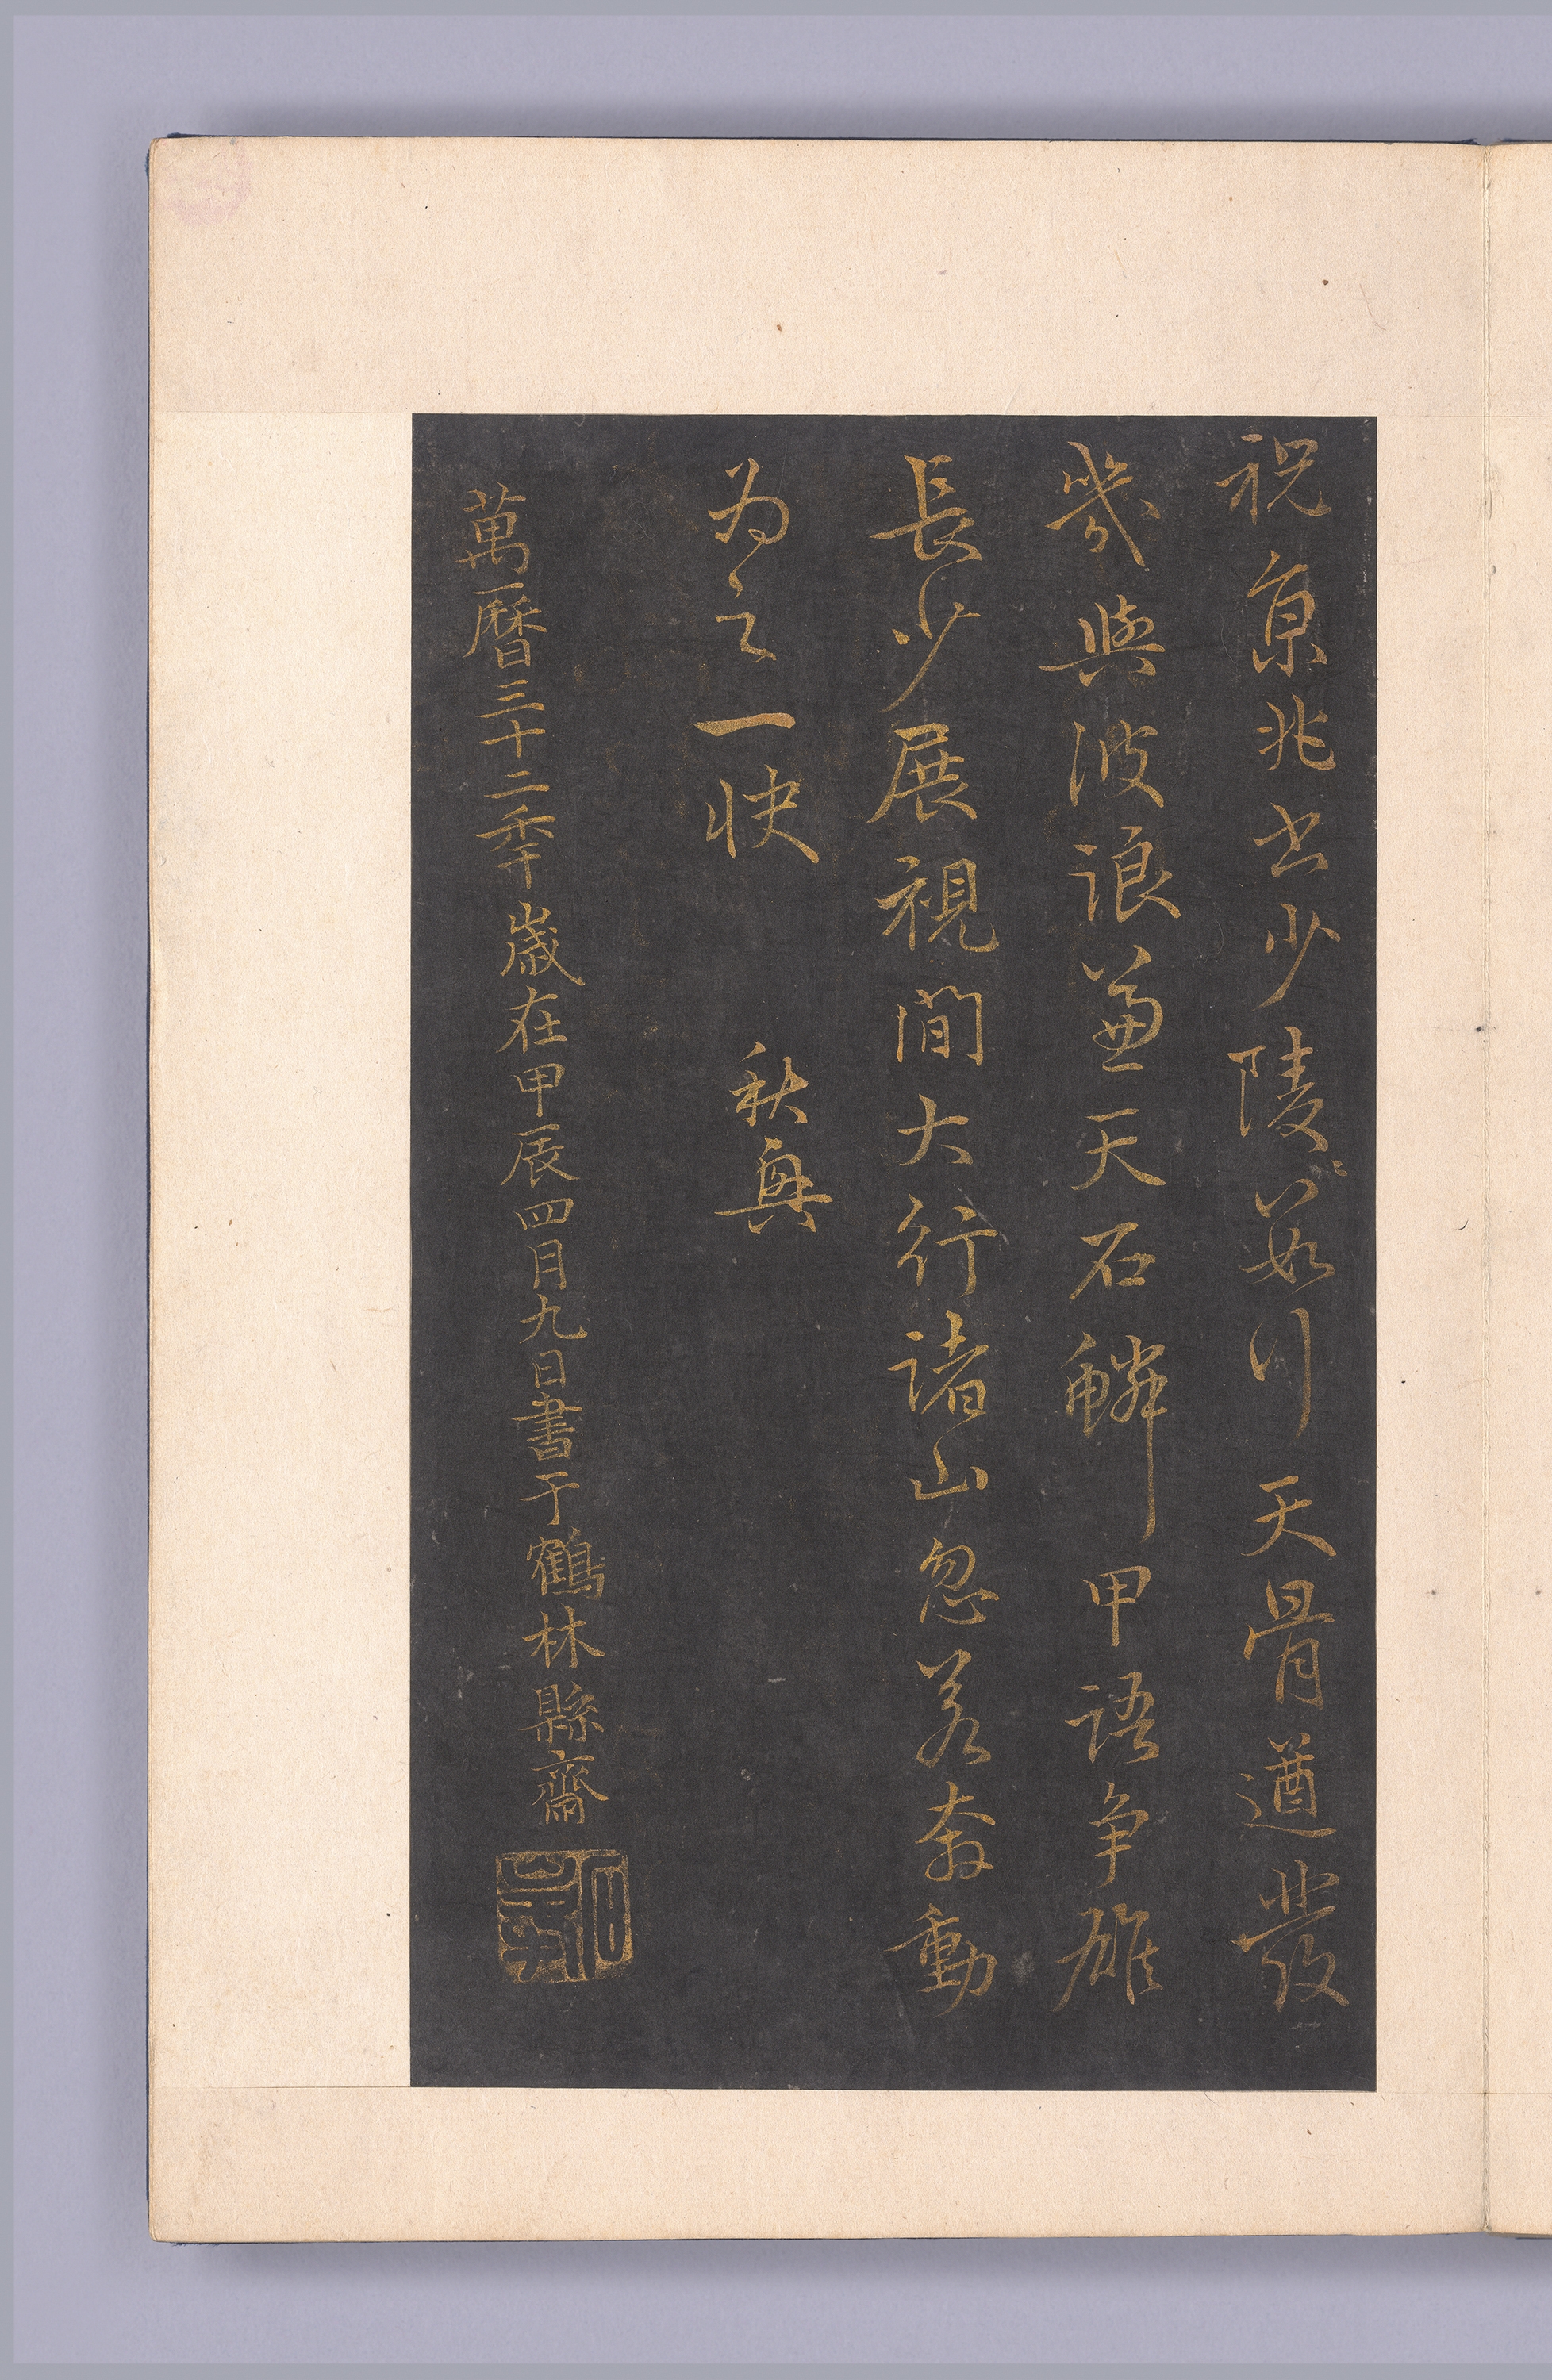 祝京兆书少陵數行天骨遒發
幾與波浪兼天石鱗甲語爭雄
長少展視間大行諸山忽若奔動
為之一快　秋興
萬曆三十二秊歲在甲辰四月九日書于鶴林縣齋